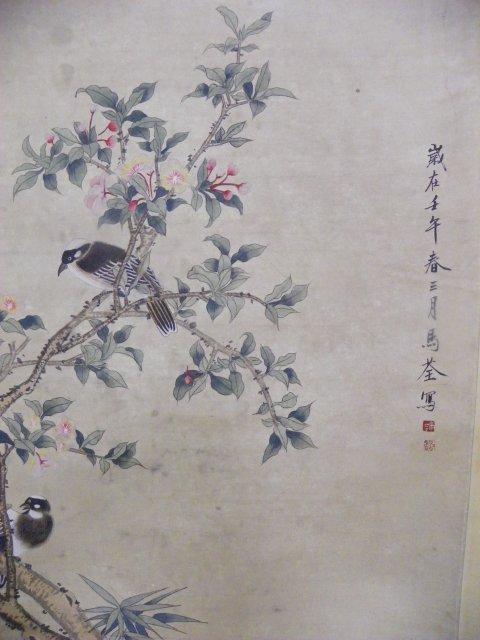 歲在壬午春三月馬荃寫